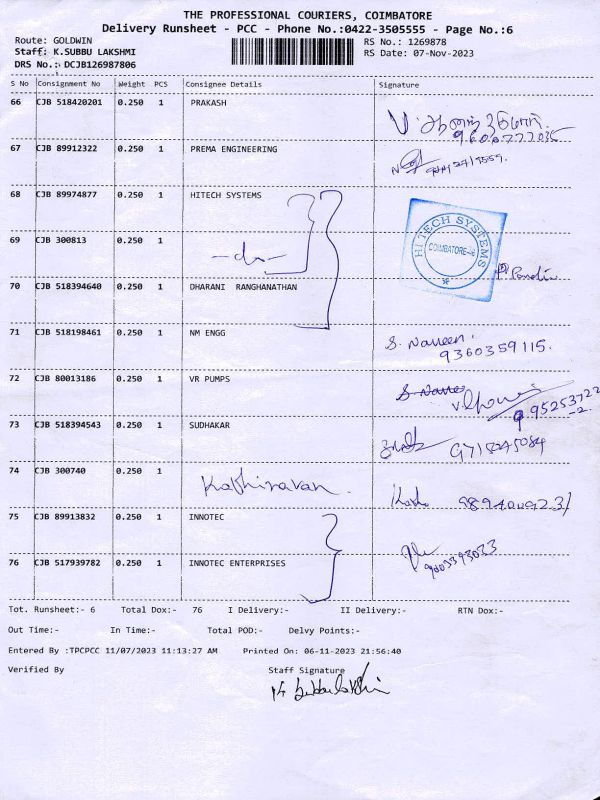 THE PROFESSIONAL COURIERS, COIMBATORE
Delivery Runsheet - PCC - Phone No.:0422-3505555 - Page No.:6
Route: GOLDWIN RS No.: 1269878
Staff: K.SUBBU LAKSHMI RS Date: 07-Nov-2023
DRS No.: DCJB126987806
S No Consignment No Weight PCS Consignee Details Signature
66 CJB 518420201 0.250 1 PRAKASH
67 CJB 89912322 0.250 1 PREMA ENGINEERING
68 CJB 89974877 0.250 1 HITECH SYSTEMS
HITECH SYSTEMS
COIMBATORE
69 CJB 300813 0.250 1
-do-
70 CJB 518394640 0.250 1 DHARANI RANGHANATHAN
71 CJB 518198461 0.250 1 NM ENGG
S. Naveen
9360359115.
72 CJB 80013186 0.250 1 VR PUMPS
73 CJB 518394543 0.250 1 SUDHAKAR
74 CJB 300740 0.250 1
Kathiravan.
75 CJB 89913832 0.250 1 INNOTEC
76 CJB 517939782 0.250 1 INNOTEC ENTERPRISES
Tot. Runsheet:- 6 Total Dox:- 76 I Delivery:- II Delivery:- RTN Dox:-
Out Time:- In Time:- Total POD:- Delvy Points:-
Entered By :TPCPCC 11/07/2023 11:13:27 AM Printed On: 06-11-2023 21:56:40
Verified By Staff Signature